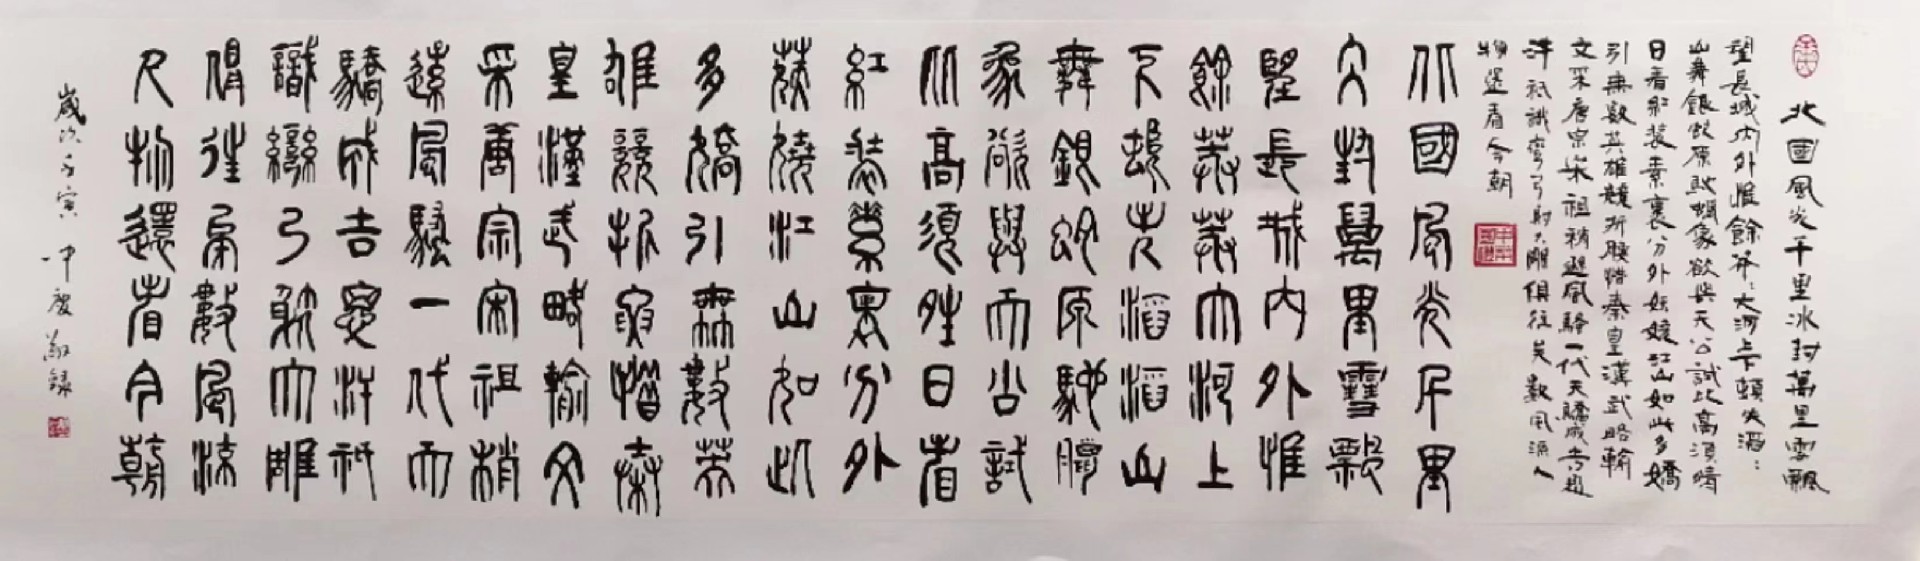 北國風光千里冰封萬里雪飄
望長城內外惟餘莽〻大河上下頓失滔〻
山舞銀蛇原馳蠟象欲與天公試比高須晴
日看紅裝素裹分外妖嬈江山如此多嬌
引無數英雄競折腰惜秦皇漢武略輸
文采唐宗宋祖稍遜風騷一代天驕成吉思
汗祇識彎弓射大雕俱往矣數風流人
物還看今朝
北國風光千里
冰封萬里雪飄
望長城內外惟
餘莽莽大河上
下頓失滔滔山
舞銀蛇原馳臘
象欲與天公試
比高須晴日看
紅裝素裹分外
妖嬈江山如此
多嬌引無數英
雄競折腰惜秦
皇漢武略輸文
采唐宗宋祖稍
遜風騷一代天
驕成吉思汗祇
識彎弓射大雕
俱往矣數風流
人物還看今朝
歲次壬寅 中慶敬錄